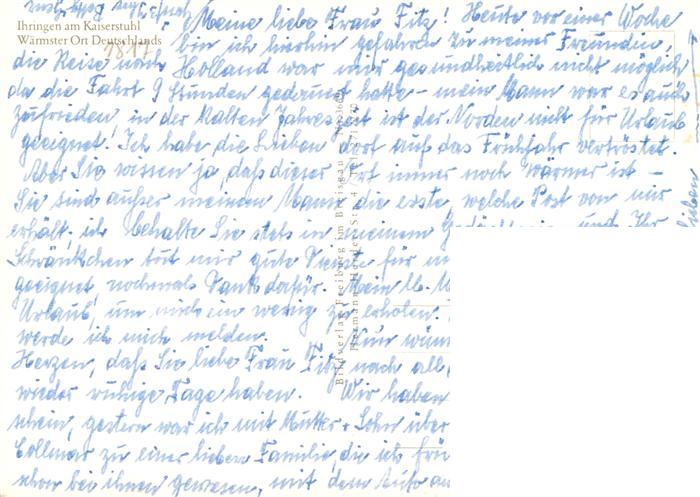 Ihringen am Kaiserstuhl
Wärmster Ort Deutschlands
Meine liebe Frau Fitz! Heute vor einer Woche
bin ich hierhin gefahren zu meiner Freundin,
die Reise nach Holland war mir gesundheitlich nicht möglich
da die Fahrt 9 Stunden gedauert hatte – mein Mann war es auch
zufrieden in der kalten Jahreszeit ist der Norden nicht für Urlaub
geeignet! Ich habe die Lieben dort auf das Frühjahr vertröstet.
Aber Sie wissen ja, daß dieser Ort immer noch wärmer ist –
Sie sind außer meinem Mann die erste welche Post von mir
erhält, ich behalte Sie stets in meinem
und Ihr
Schränkchen tut mir gute Dienste für
geeignet nochmals Dank dafür. Mein lb.
Urlaub! um mich ein wenig zu erholen.
werde ich mich melden. Nur
Herzen, daß Sie liebe Frau Fitz nach all
wieder ruhige Tage haben. Wir haben
schein, gestern war ich mit Mutter + Sohn über
Collmar zu einer lieben Familie, die ich
schon bei ihnen gewesen, mit dem Auto
lieben
Bildverlag Freiburg im Breisgau
Hermann-Herder-Str. 4